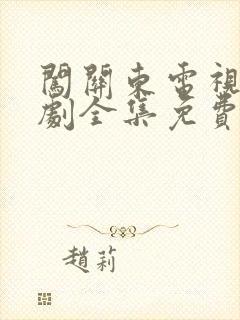 闖關東電視
劇全集免費
趙莉